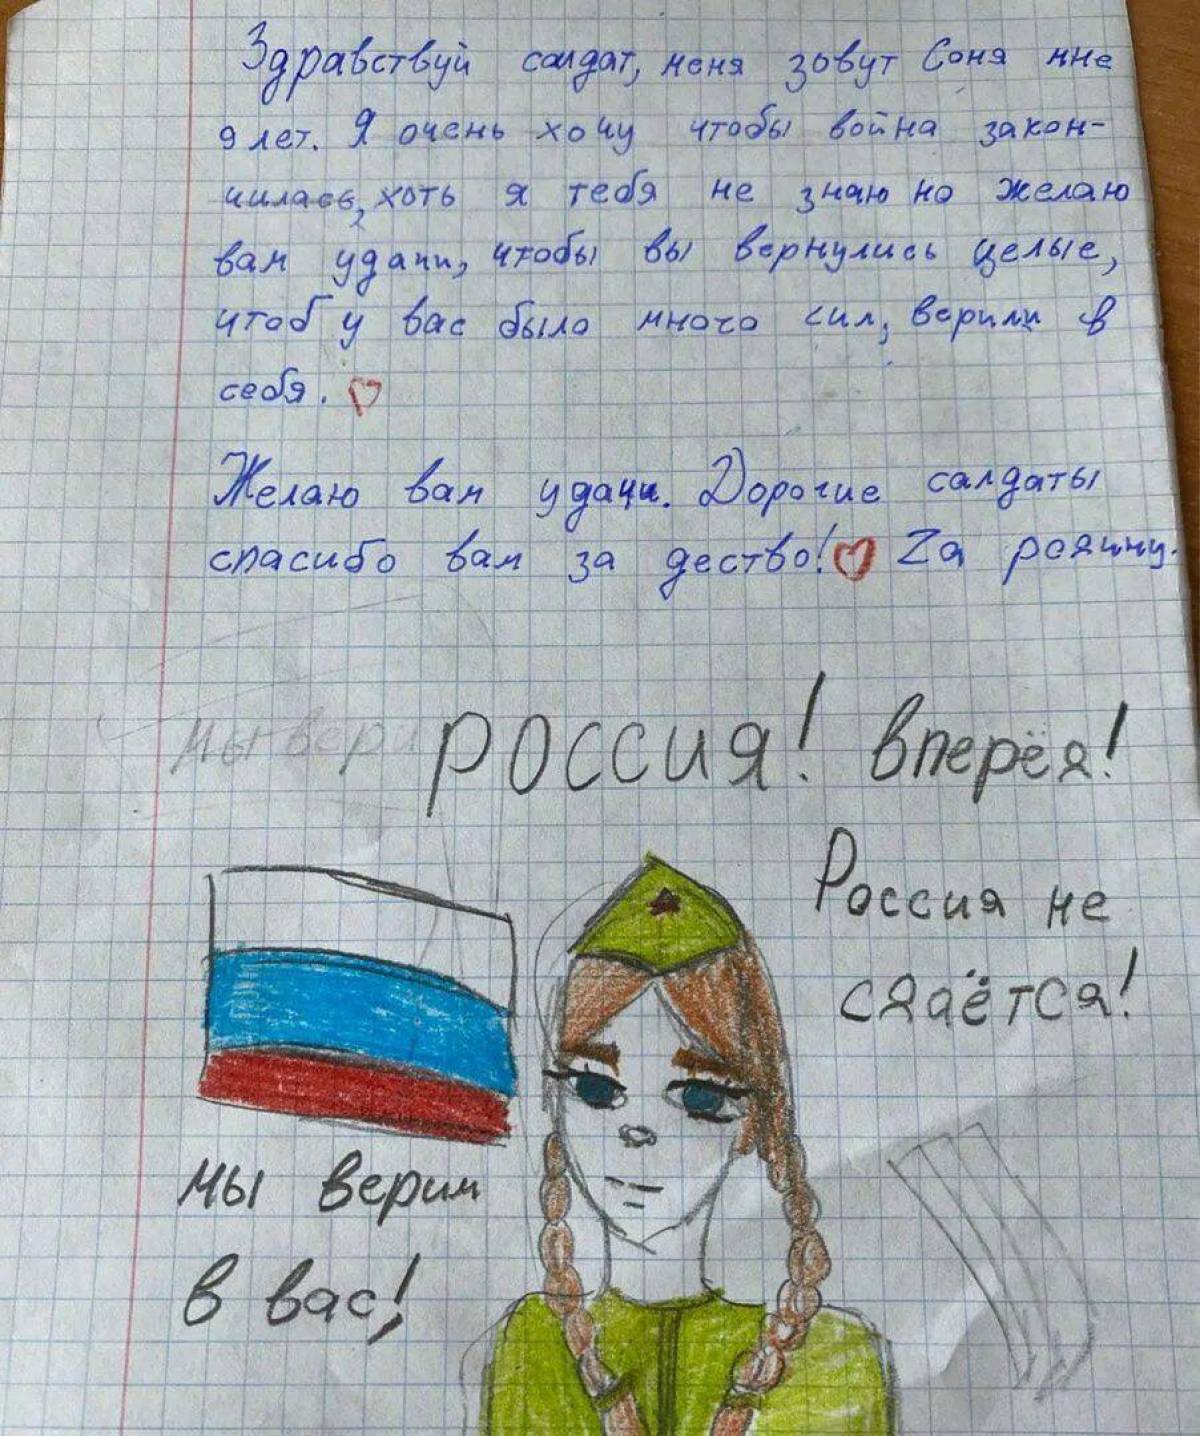 Здравствуй салдат, меня зовут Соня мне
9 лет. Я очень хочу чтобы война закон-
чилась, хоть я тебя не знаю но желаю
вам удачи, чтобы вы вернулись целые,
чтоб у вас было много сил, верили в
себя.
Желаю вам удачи. Дорогие салдаты
спасибо вам за дество! Zа родину.
мы вери
россия! вперёд!
Россия не
сдаётся!
мы верим
в вас!